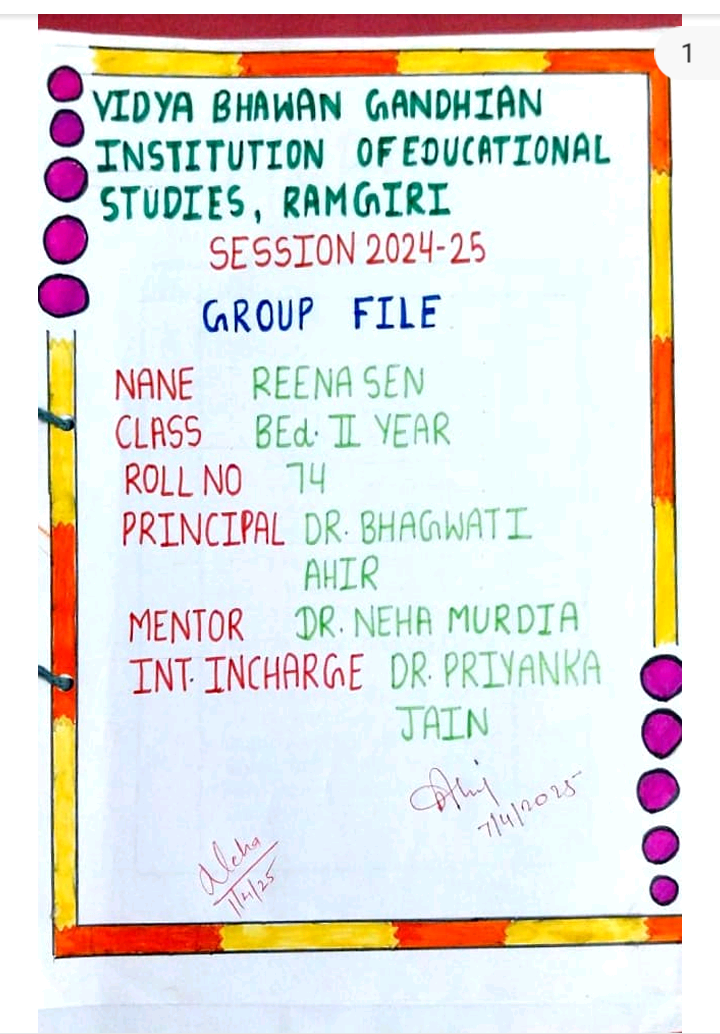 1
VIDYA BHAWAN GANDHIAN
INSTITUTION OF EDUCATIONAL
STUDIES, RAMGIRI
SESSION 2024-25
GROUP FILE
NANE REENA SEN
CLASS BEd. II YEAR
ROLL NO 74
PRINCIPAL DR. BHAGWATI
AHIR
MENTOR DR. NEHA MURDIA
INT. INCHARGE DR. PRIYANKA
JAIN
7/4/2025
Neha